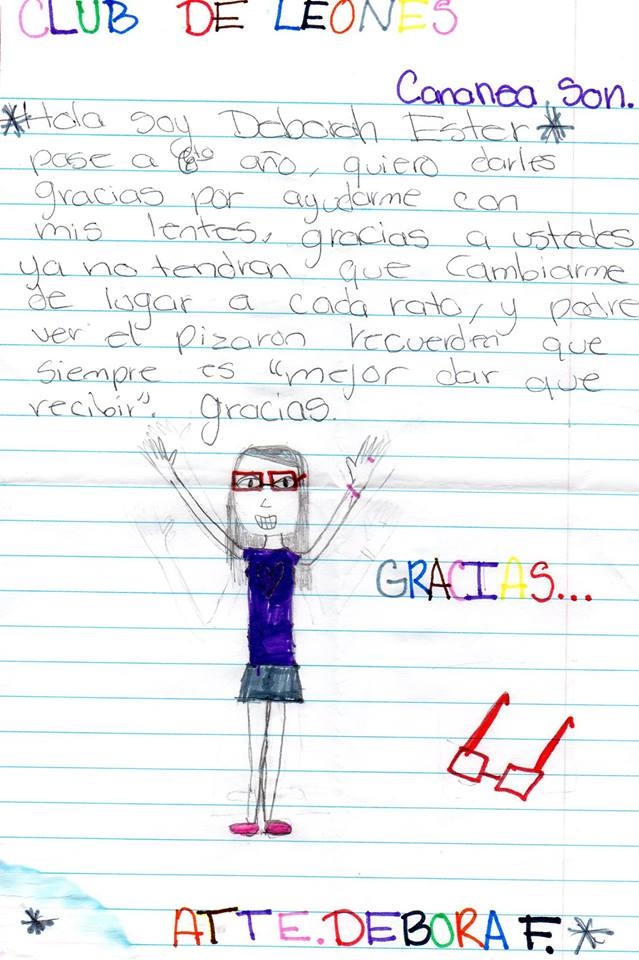 CLUB DE LEONES
Cananea, Son.
*Hola soy Deborah Ester*
pase a 6to año, quiero darles
gracias por ayudarme con
mis lentes, gracias a ustedes
ya no tendran que Cambiarme
de lugar a cada rato, y podre
ver el pizaron recuerden que
siempre es "mejor dar que
recibir". gracias.
GRACIAS...
* ATTE. DEBORA F. *